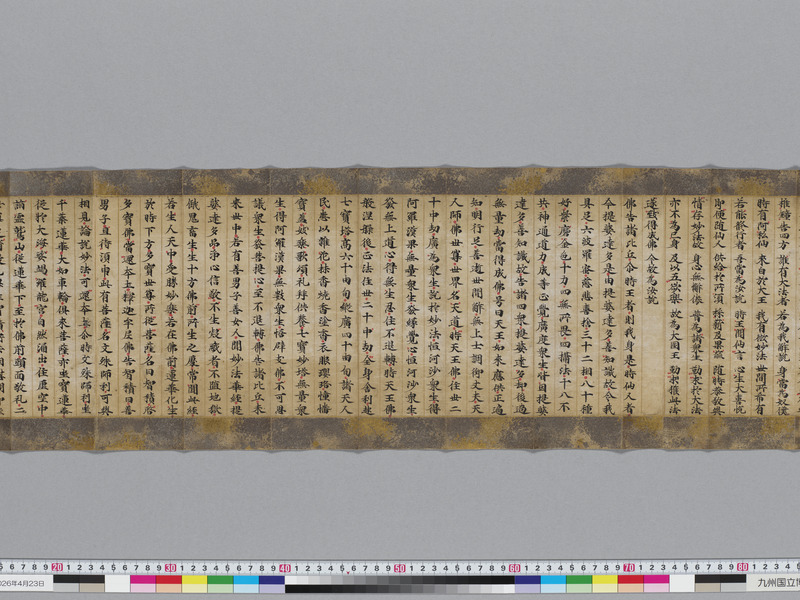 推鐘告四方 誰有大法者 若為我解說 身當為奴僕
時有阿私仙 來白於大王 我有微妙法 世間所希有
若能脩行者 吾當為汝說 時王聞仙言 心生大喜悅
即便隨仙人 供給於所須 採薪及菓蓏 隨時恭敬與
情存妙法故 身心無懈惓 普為諸衆生 勤求於大法
亦不為己身 及以五欲樂 故為大國王 勤求獲此法
遂致得成佛 今故為汝說
佛告諸比丘尒時王者則我身是時仙人者
今提婆達多是由提婆達多善知識故令我
具足六波羅蜜慈悲喜捨三十二相八十種
好紫磨金色十力四無所畏四攝法十八不
共神通道力成等正覺廣度衆生皆因提婆
達多善知識故告諸四衆提婆達多却後過
無量劫當得成佛号曰天王如來應供正遍
知明行足善逝世間解無上士調御丈夫天
人師佛世尊世界名天道時天王佛住世二
十中劫廣為衆生說於妙法恒河沙衆生得
阿羅漢果無量衆生發緣覺心恒河沙衆生
發無上道心得無生忍住不退轉時天王佛
般涅槃後正法住世二十中劫全身舍利起
七寶塔高六十由旬縱廣四十由旬諸天人
民悉以雜花抹香燒香塗香衣服瓔珞幢幡
寶蓋伎樂歌頌礼拜供養七寶妙塔無量衆
生得阿羅漢果無數衆生悟辟支佛不可思
議衆生發菩提心至不退轉佛告諸比丘未
來世中若有善男子善女人聞妙法華經提
婆達多品淨心信敬不生疑惑者不墮地獄
餓鬼畜生生十方佛前所生之處常聞此經
若生人天中受勝妙樂若在佛前蓮華化生
於時下方多寶世尊所從菩薩名曰智積啓
多寶佛當還本土釋迦牟尼佛告智積曰善
男子且待須臾此有菩薩名文殊師利可與
相見論說妙法可還本土尒時文殊師利坐
千葉蓮華大如車輪俱來菩薩亦坐寶蓮華
從於大海娑竭羅龍宮自然涌出住虛空中
詣靈鷲山從蓮華下至於佛前頭面敬礼二
20 30 40 50 60 70 80
026年4月23日
九州国立博